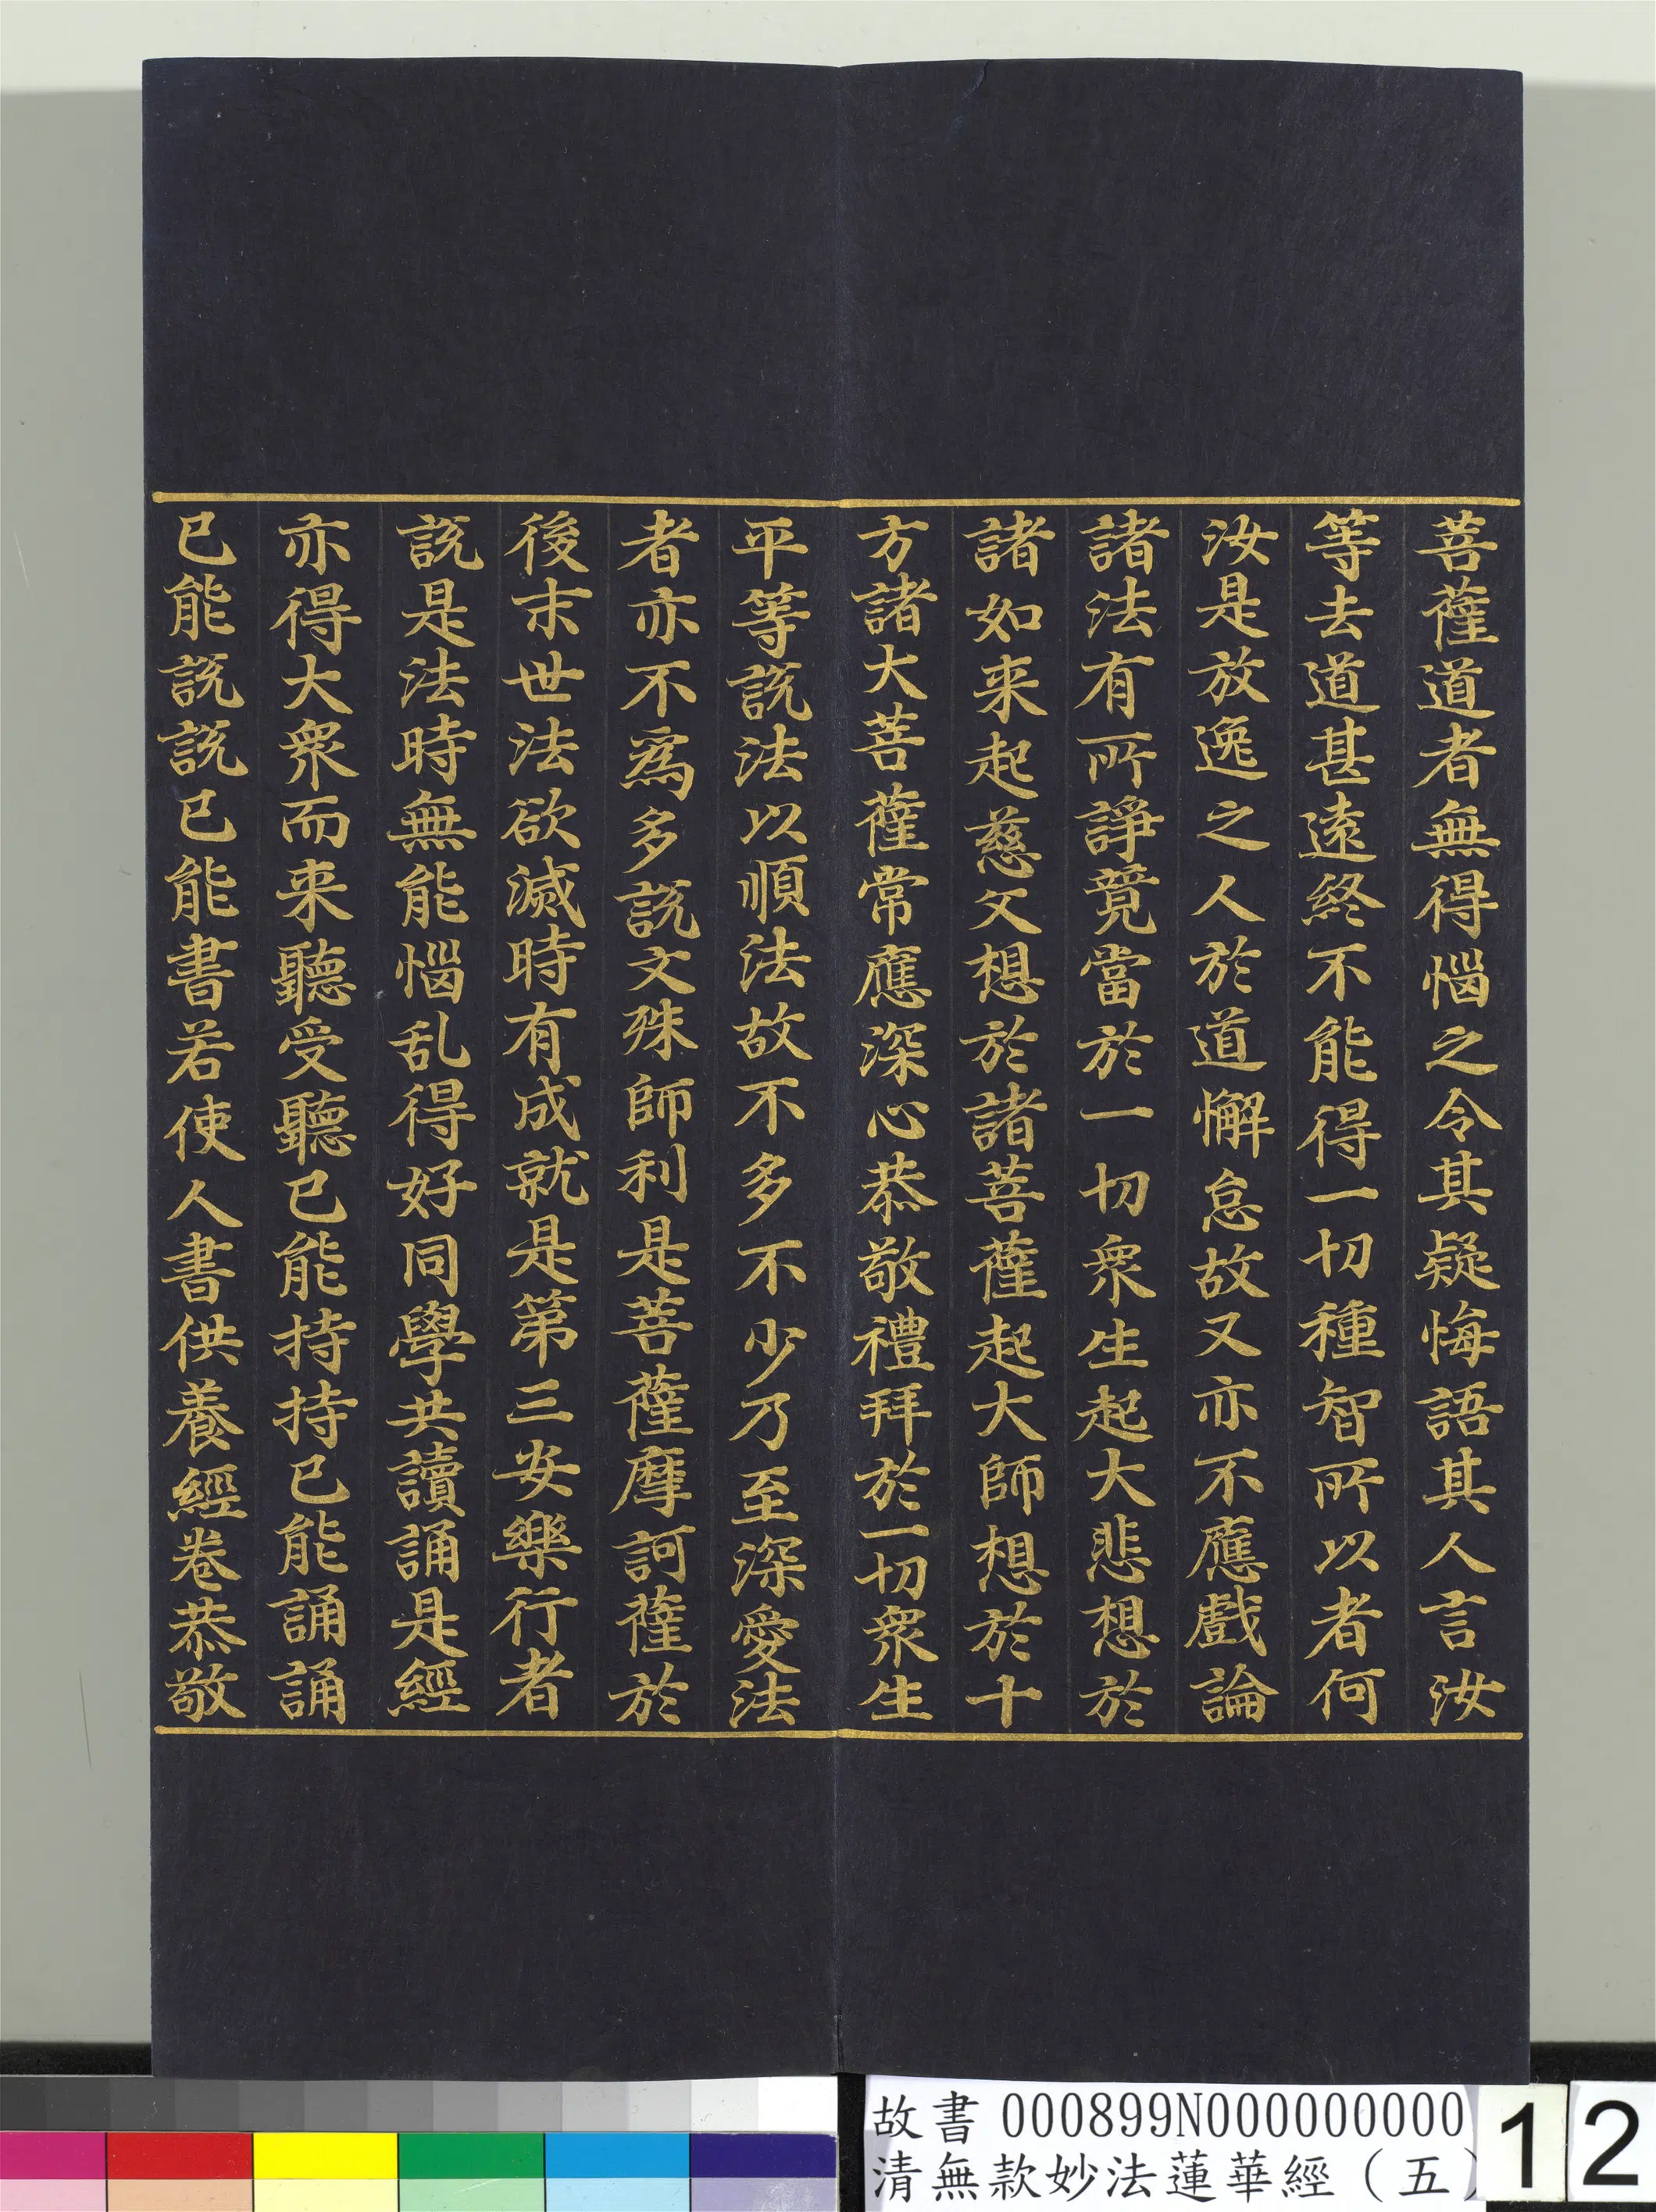 菩薩道者無得惱之令其疑悔語其人言汝
等去道甚遠終不能得一切種智所以者何
汝是放逸之人於道懈怠故又亦不應戲論
諸法有所諍竟當於一切衆生起大悲想於
諸如来起慈父想於諸菩薩起大師想於十
方諸大菩薩常應深心恭敬禮拜於一切衆生
平等說法以順法故不多不少乃至深愛法
者亦不為多說文殊師利是菩薩摩訶薩於
後末世法欲滅時有成就是第三安樂行者
說是法時無能惱乱得好同學共讀誦是經
亦得大衆而来聽受聽已能持持已能誦誦
已能說說已能書若使人書供養經卷恭敬
故書 000899N000000000
清無款妙法蓮華經（五）
12